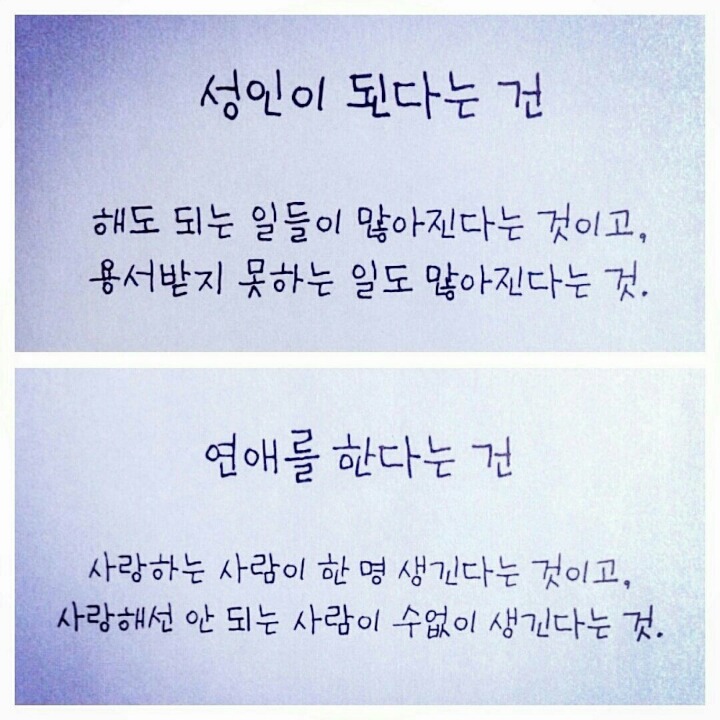 성인이 된다는 건
해도 되는 일들이 많아진다는 것이고,
용서받지 못하는 일도 많아진다는 것.
연애를 한다는 건
사랑하는 사람이 한 명 생긴다는 것이고,
사랑해선 안 되는 사람이 수없이 생긴다는 것.